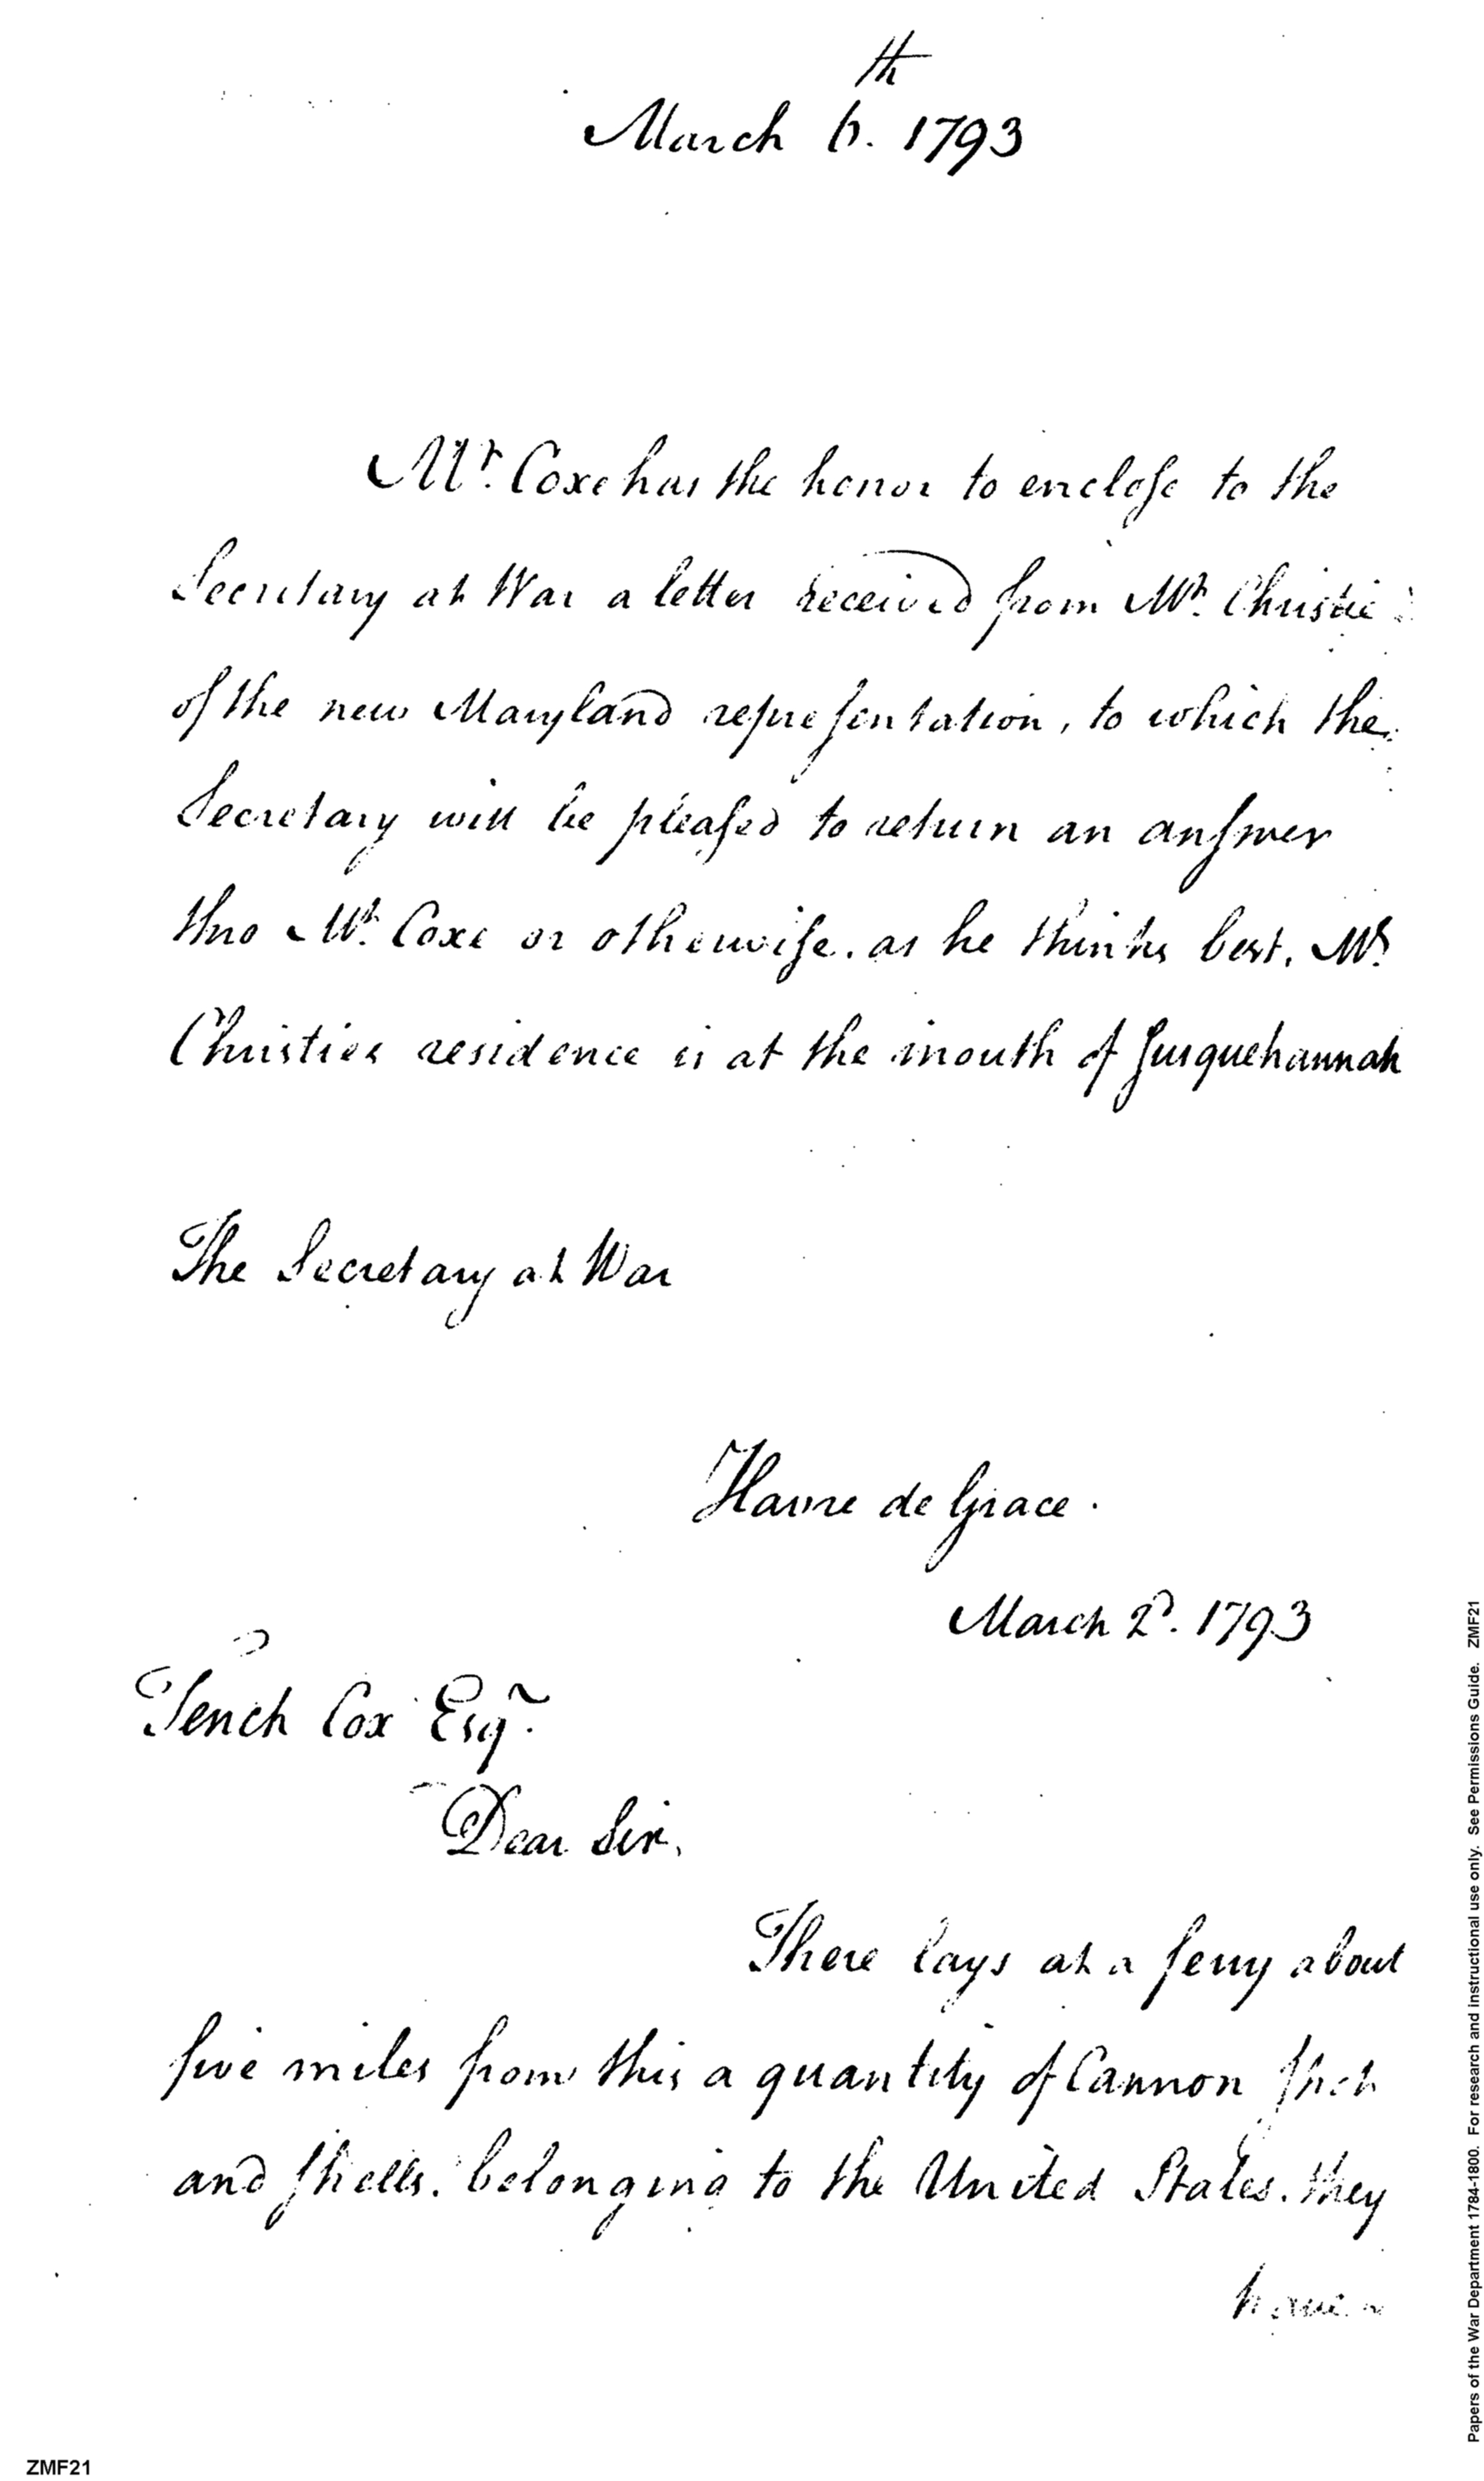 March 6.th 1793
Mr. Coxe has the honor to enclose to the
Secretary at War a letter received from Mr. Christie
of the new Maryland representation, to which the
Secretary will be pleased to return an answer
thro Mr. Coxe or otherwise. as he thinks best. Mr.
Christies residence is at the mouth of Susquehannah
The Secretary at War
Havre de Grace.
March 2d. 1793
Tench Cox Esqr.
Dear Sir,
There lays at a ferry about
five miles from this a quantity of Cannon Shot
and Shells. belonging to the United States. they
have
ZMF21
Papers of the War Department 1784-1800. For research and instructional use only. See Permissions Guide. ZMF21